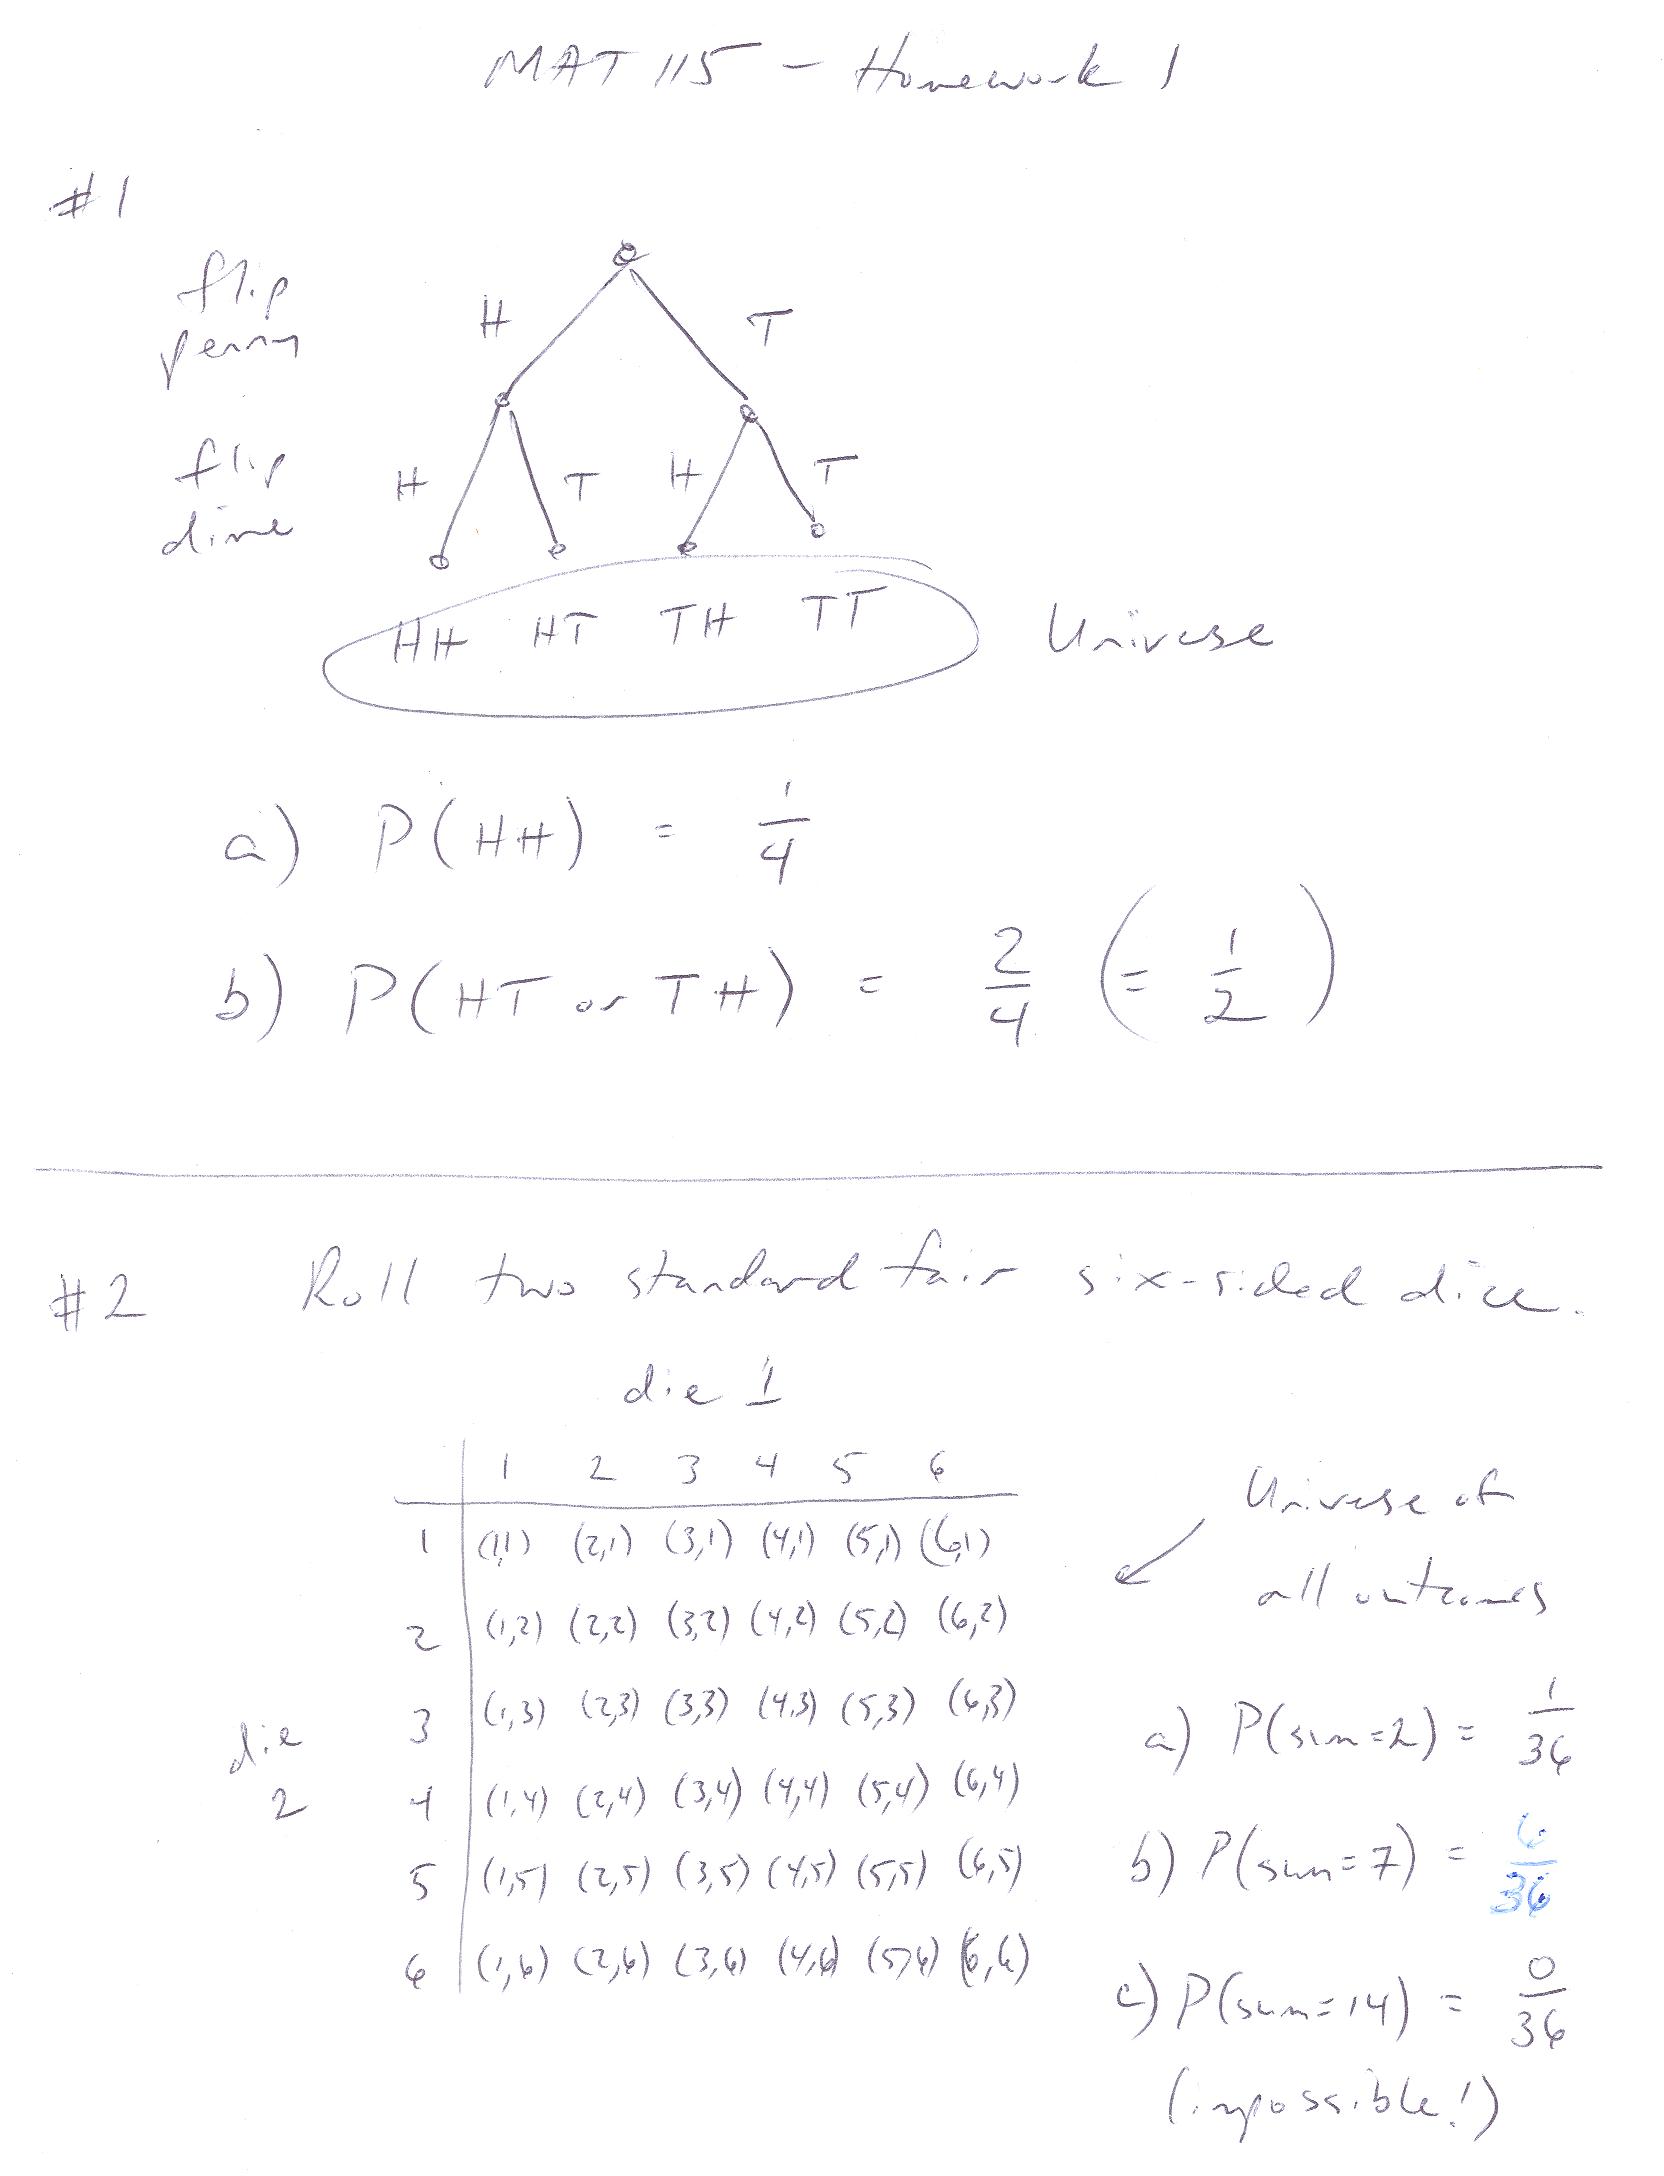 MAT 115 - Homework 1
#1
flip
penny
H T
flip
dime
H T H T
HH HT TH TT
Universe
a) P(HH) = 1/4
b) P(HT or TH) = 2/4 (= 1/2)
#2 Roll two standard fair six-sided dice.
die 1
1 2 3 4 5 6
1 (1,1) (2,1) (3,1) (4,1) (5,1) (6,1)
2 (1,2) (2,2) (3,2) (4,2) (5,2) (6,2)
3 (1,3) (2,3) (3,3) (4,3) (5,3) (6,3)
4 (1,4) (2,4) (3,4) (4,4) (5,4) (6,4)
5 (1,5) (2,5) (3,5) (4,5) (5,5) (6,5)
6 (1,6) (2,6) (3,6) (4,6) (5,6) (6,6)
die
2
Universe of
all outcomes
a) P(sum=2) = 1/36
b) P(sum=7) = 6/36
c) P(sum=14) = 0/36
(impossible!)